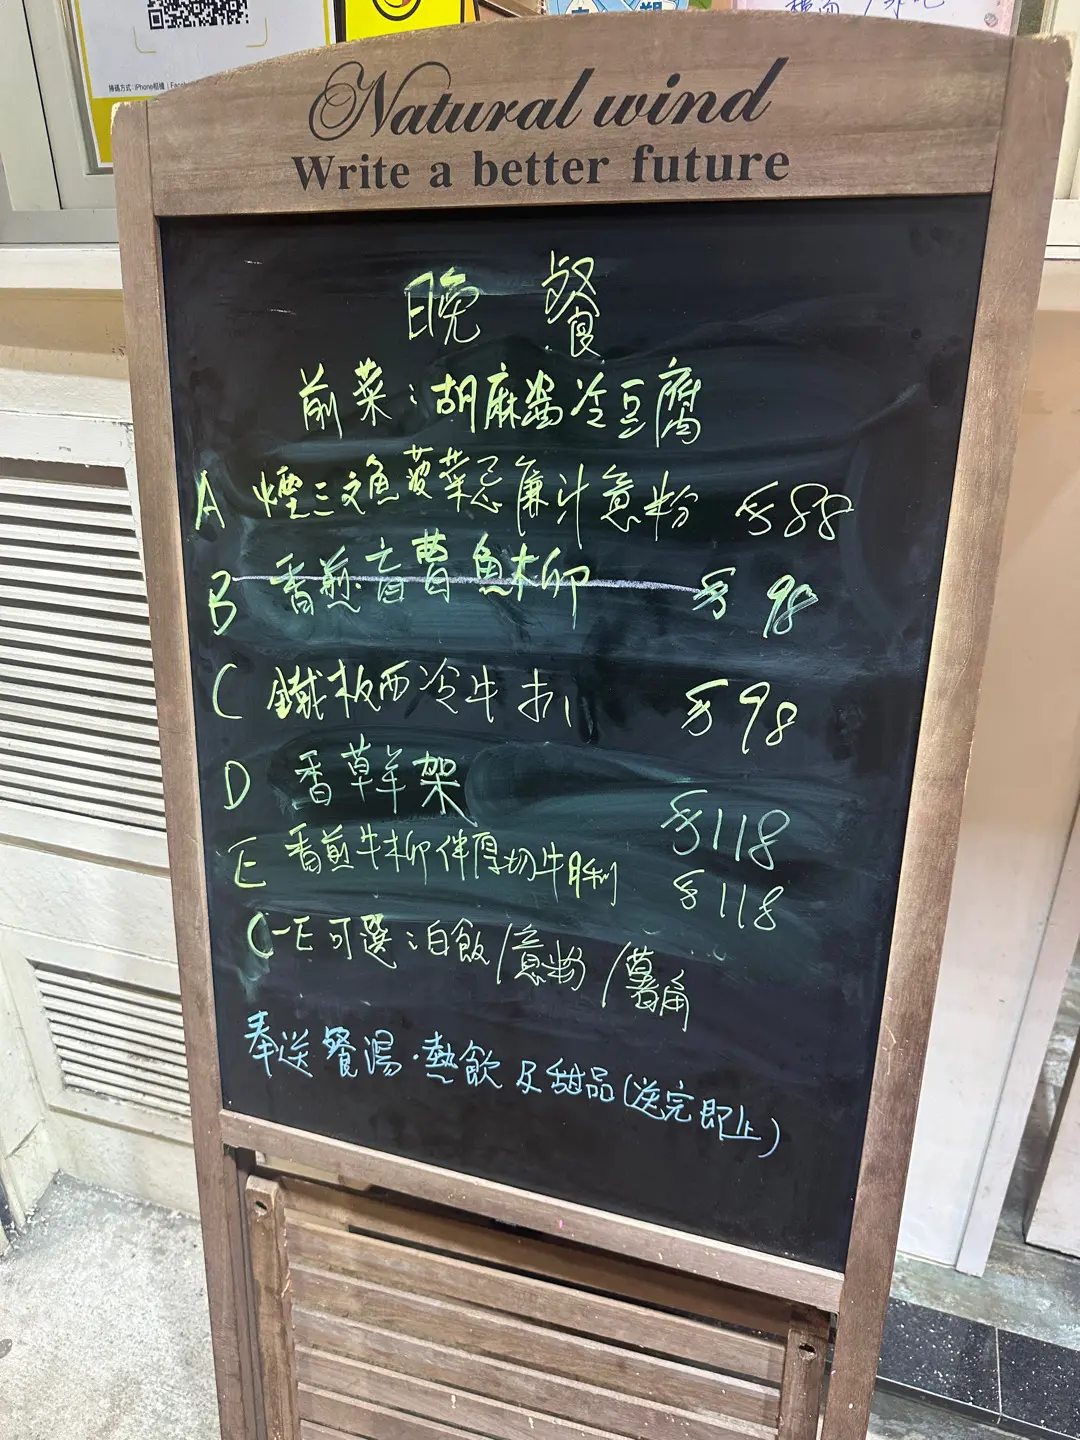 掃碼方式：iPhone相機｜Face
Natural wind
Write a better future
晚 餐
前菜：胡麻醬冷豆腐
A 煙三文魚菠菜忌廉汁意粉 $88
B 香煎盲曹魚柳 $98
C 鐵板西冷牛扒 $98
D 香草羊架 $118
E 香煎牛柳伴厚切牛脷 $118
C-E可選：白飯/意粉/薯角
奉送餐湯．熱飲及甜品(送完即止)